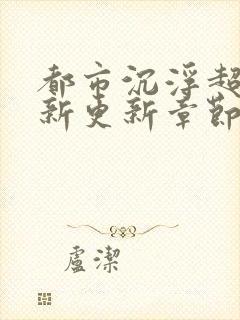 都市沉浮超
新更新章節
盧潔